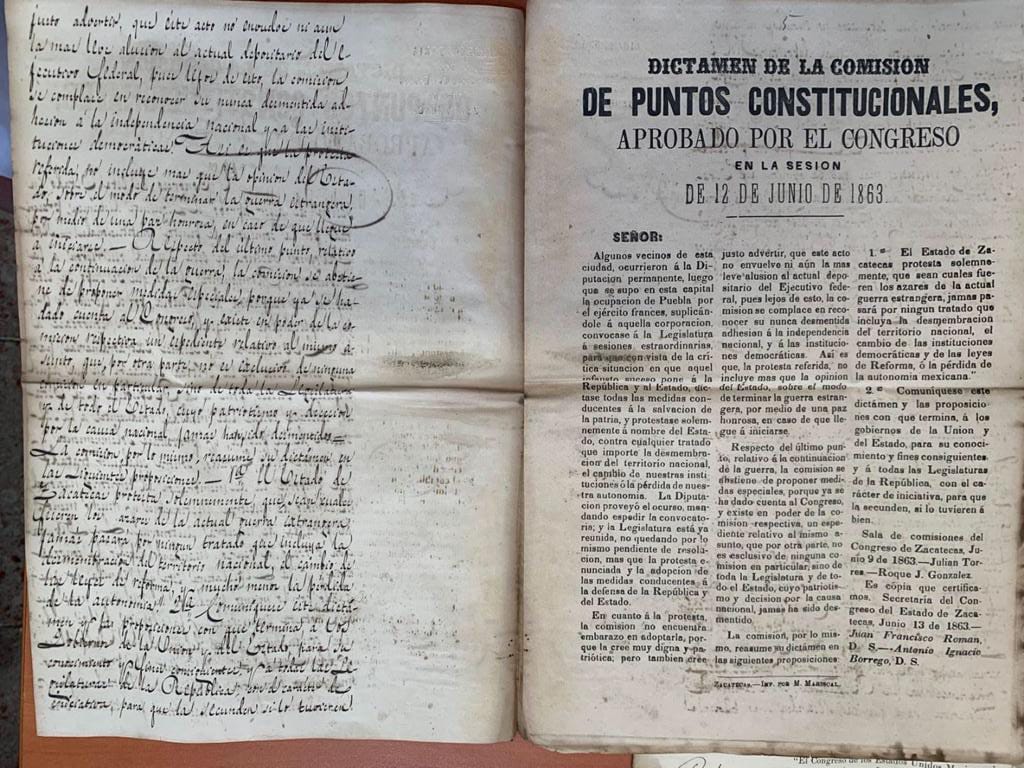 justo advertir, que éste acto no envuelve ni aun
la mas leve alusion al actual depositario del E-
jecutivo federal, pues lejos de esto, la comision
se complace en reconocer su nunca desmentida ad-
hecion á la independencia nacional y a las insti-
tuciones democráticas. Asi es que la protesta
referida, no incluye mas que la opinion del Esta-
do, sobre el modo de terminar la guerra estrangera,
por medio de una paz honrosa, en caso de que llegue
á iniciarse. — Respecto del último punto, relativo
á la continuacion de la guerra, la comision se abstie-
ne de proponer medidas especiales, porque ya se ha
dado cuenta al Congreso, y existe en poder de la co-
mision respectiva un espediente relativo al mismo a-
sunto, que, por otra parte, no es esclusivo de ninguna
comision en particular, sino de toda la Legislatura
y de todo el Estado, cuyo patriotismo y decision
por la causa nacional, jamas han sido desmentidos.=
La comision, por lo mismo, reasume su dictámen en
las siguientes proposiciones. — 1ª El Estado de
Zacatecas protesta solemnemente, que sean cuales
fueren los azares de la actual guerra estrangera,
jamas pasará por ningun tratado que incluya la
desmembracion del territorio nacional, el cambio de
las leyes de reforma, y mucho menor la pérdida
de la autonomia. 2ª Comuniquese este dictá-
men y las proposiciones con que termina, á los
Gobiernos de la Union y del Estado, para su
conocimiento y fines consiguientes, y a todas las Le-
gislaturas de la República, con el carácter de
iniciativa, para que la secunden si lo tuvieren
5
DICTAMEN DE LA COMISION
DE PUNTOS CONSTITUCIONALES,
APROBADO POR EL CONGRESO
EN LA SESION
DE 12 DE JUNIO DE 1863.
SEÑOR:
Algunos vecinos de esta
ciudad, ocurrieron á la Di-
putacion permanente, luego
que se supo en esta capital
la ocupacion de Puebla por
el ejército frances, suplicán-
dole á aquella corporacion,
convocase á la Legislatura
á sesiones estraordinarias,
para que con vista de la crí-
tica situacion en que aquel
infausto suceso pone á la
República y al Estado, dic-
tase todas las medidas con-
ducentes á la salvacion de
la patria, y protestase solem-
nemente á nombre del Esta-
do, contra cualquier tratado
que importe la desmembra-
cion del territorio nacional,
el cambio de nuestras insti-
tuciones ó la pérdida de nues-
tra autonomia. La Diputa-
cion proveyó el ocurso, man-
dando espedir la convocato-
ria; y la Legislatura está ya
reunida, no quedando por lo
mismo pendiente de resolu-
cion, mas que la protesta e-
nunciada y la adopcion de
las medidas conducentes á
la defensa de la República y
del Estado.
En cuanto á la protesta,
la comision no encuentra
embarazo en adoptarla, por-
que la cree muy digna y pa-
triótica; pero tambien cree
justo advertir, que este acto
no envuelve ni aún la mas
leve alusion al actual depo-
sitario del Ejecutivo fede-
ral, pues lejos de esto, la co-
mision se complace en reco-
nocer su nunca desmentida
adhesion á la independencia
nacional, y á las institucio-
nes democráticas. Asi es
que, la protesta referida, no
incluye mas que la opinion
del Estado, sobre el modo
de terminar la guerra estran-
gera, por medio de una paz
honrosa, en caso de que lle-
gue á iniciarse.
Respecto del último pun-
to, relativo á la continuacion
de la guerra, la comision se
abstiene de proponer medi-
das especiales, porque ya se
ha dado cuenta al Congreso,
y existe en poder de la co-
mision respectiva, un espe-
diente relativo al mismo a-
sunto, que por otra parte, no
es esclusivo de ninguna co-
mision en particular, sino de
toda la Legislatura y de to-
do el Estado, cuyo patriotis-
mo y decision por la causa
nacional, jamas ha sido des-
mentido.
La comision, por lo mis-
mo, reasume su dictámen en
las siguientes proposiciones:
1.ª El Estado de Za-
catecas protesta solemne-
mente, que sean cuales fue-
ren los azares de la actual
guerra estrangera, jamas pa-
sará por ningun tratado que
incluya la desmembracion
del territorio nacional, el
cambio de las instituciones
democráticas y de las leyes
de Reforma, ó la pérdida de
la autonomia mexicana."
2.ª Comuníquese este
dictámen y las proposicio-
nes con que termina, á los
gobiernos de la Union y
del Estado, para su conoci-
miento y fines consiguientes
y á todas las Legislaturas
de la República, con el ca-
rácter de iniciativa, para que
la secunden, si lo tuvieren á
bien.
Sala de comisiones del
Congreso de Zacatecas, Ju-
nio 9 de 1863.—Julian Tor-
res.—Roque J. Gonzalez.
Es cópia que certifica-
mos, Secretaria del Con-
greso del Estado de Zaca-
tecas, Junio 13 de 1863.—
Juan Francisco Roman,
D. S.—Antonio Ignacio
Borrego, D. S.
ZACATECAS.—IMP. POR M. MARISCAL.
"El Congreso de los Estados Unidos